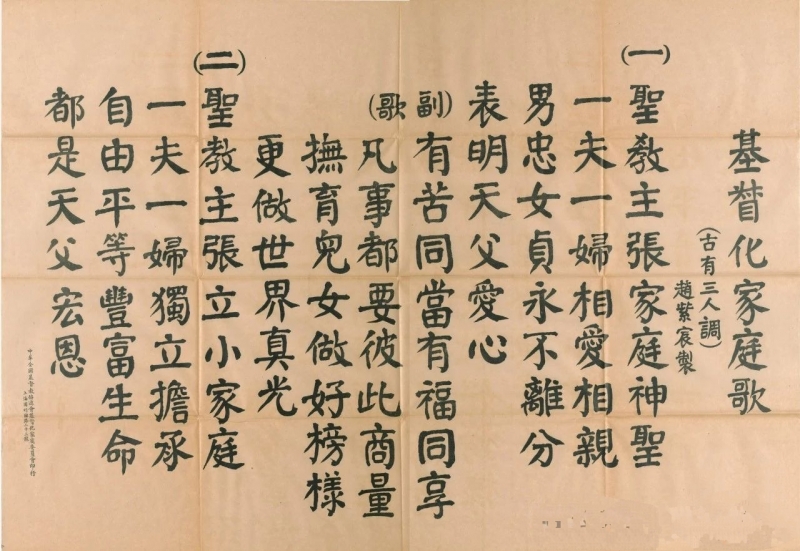 基督化家庭歌
(古有三人調)
趙紫宸製
(一)聖教主張家庭神聖
一夫一婦相愛相親
男忠女貞永不離分
表明天父愛心
(副歌)有苦同當有福同享
凡事都要彼此商量
撫育兒女做好榜樣
更做世界真光
(二)聖教主張立小家庭
一夫一婦獨立擔承
自由平等豐富生命
都是天父宏恩
中華全國基督教協進會基督化家庭委員會印行